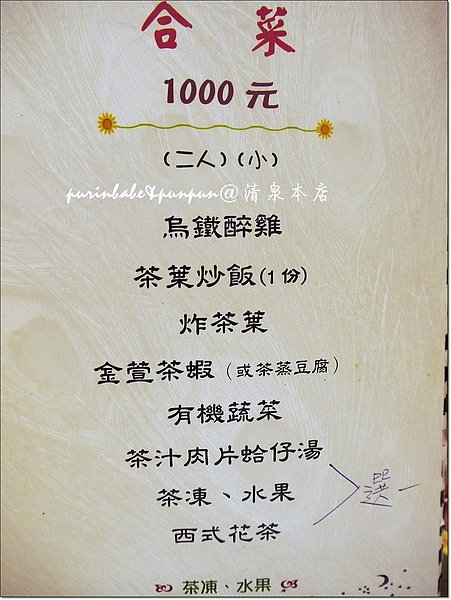 合 菜
1000 元
(二人)(小)
purinbabe&punpun@清泉本店
烏鐵醉雞
茶葉炒飯(1份)
炸茶葉
金萱茶蝦（或茶蒸豆腐）
有機蔬菜
茶汁肉片蛤仔湯
茶凍、水果
西式花茶
選一
茶凍、水果